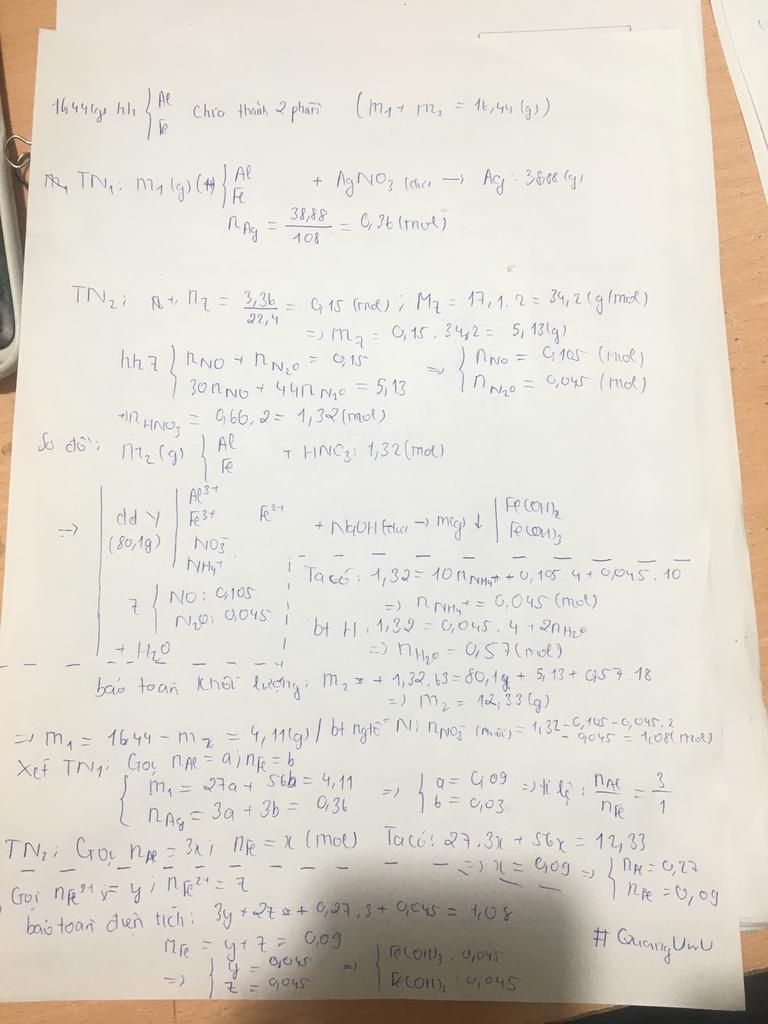 16,44(g) hh { Al Fe chia thành 2 phần (m1 + m2 = 16,44 (g))
TN1: m1 (g) { Al Fe + AgNO3 (dư) → Ag: 38,88 (g)
nAg = 38,88/108 = 0,36 (mol)
TN2: nZ = 3,36/22,4 = 0,15 (mol) ; MZ = 17,1.2 = 34,2 (g/mol)
⇒ mZ = 0,15.34,2 = 5,13 (g)
hh Z { nNO + nN2O = 0,15 30nNO + 44nN2O = 5,13 ⇒ { nNO = 0,105 (mol) nN2O = 0,045 (mol)
+ nHNO3 = 0,66.2 = 1,32 (mol)
Sơ đồ: m2 (g) { Al Fe + HNO3: 1,32 (mol)
→ | dd Y (80,1g) | Al3+ Fe3+ Fe2+ NO3- NH4+ + NaOH (dư) → m(g) ↓ | Fe(OH)2 Fe(OH)3
Z { NO: 0,105 N2O: 0,045
+ H2O
Ta có: 1,32 = 10nNH4+ + 0,105.4 + 0,045.10
⇒ nNH4+ = 0,045 (mol)
bt H: 1,32 = 0,045.4 + 2nH2O
⇒ nH2O = 0,57 (mol)
bảo toàn khối lượng: m2 + 1,32.63 = 80,1g + 5,13 + 0,57.18
⇒ m2 = 12,33 (g)
⇒ m1 = 16,44 - m2 = 4,11 (g) / bt ngtố N: nNO3- (muối) = 1,32 - 0,105 - 0,045.2 - 0,045 = 1,08 (mol)
Xét TN1: Gọi nAl = a; nFe = b
{ m1 = 27a + 56b = 4,11 nAg = 3a + 3b = 0,36 ⇒ { a = 0,09 b = 0,03 ⇒ tỉ lệ: nAl/nFe = 3/1
TN2: Gọi nAl = 3x; nFe = x (mol) Ta có: 27.3x + 56x = 12,33
⇒ x = 0,09 ⇒ { nAl = 0,27 nFe = 0,09
Gọi nFe3+ = y; nFe2+ = z
bảo toàn điện tích: 3y + 2z + 0,27.3 + 0,045 = 1,08
nFe = y + z = 0,09
⇒ { y = 0,045 z = 0,045 ⇒ { Fe(OH)3: 0,045 Fe(OH)2: 0,045